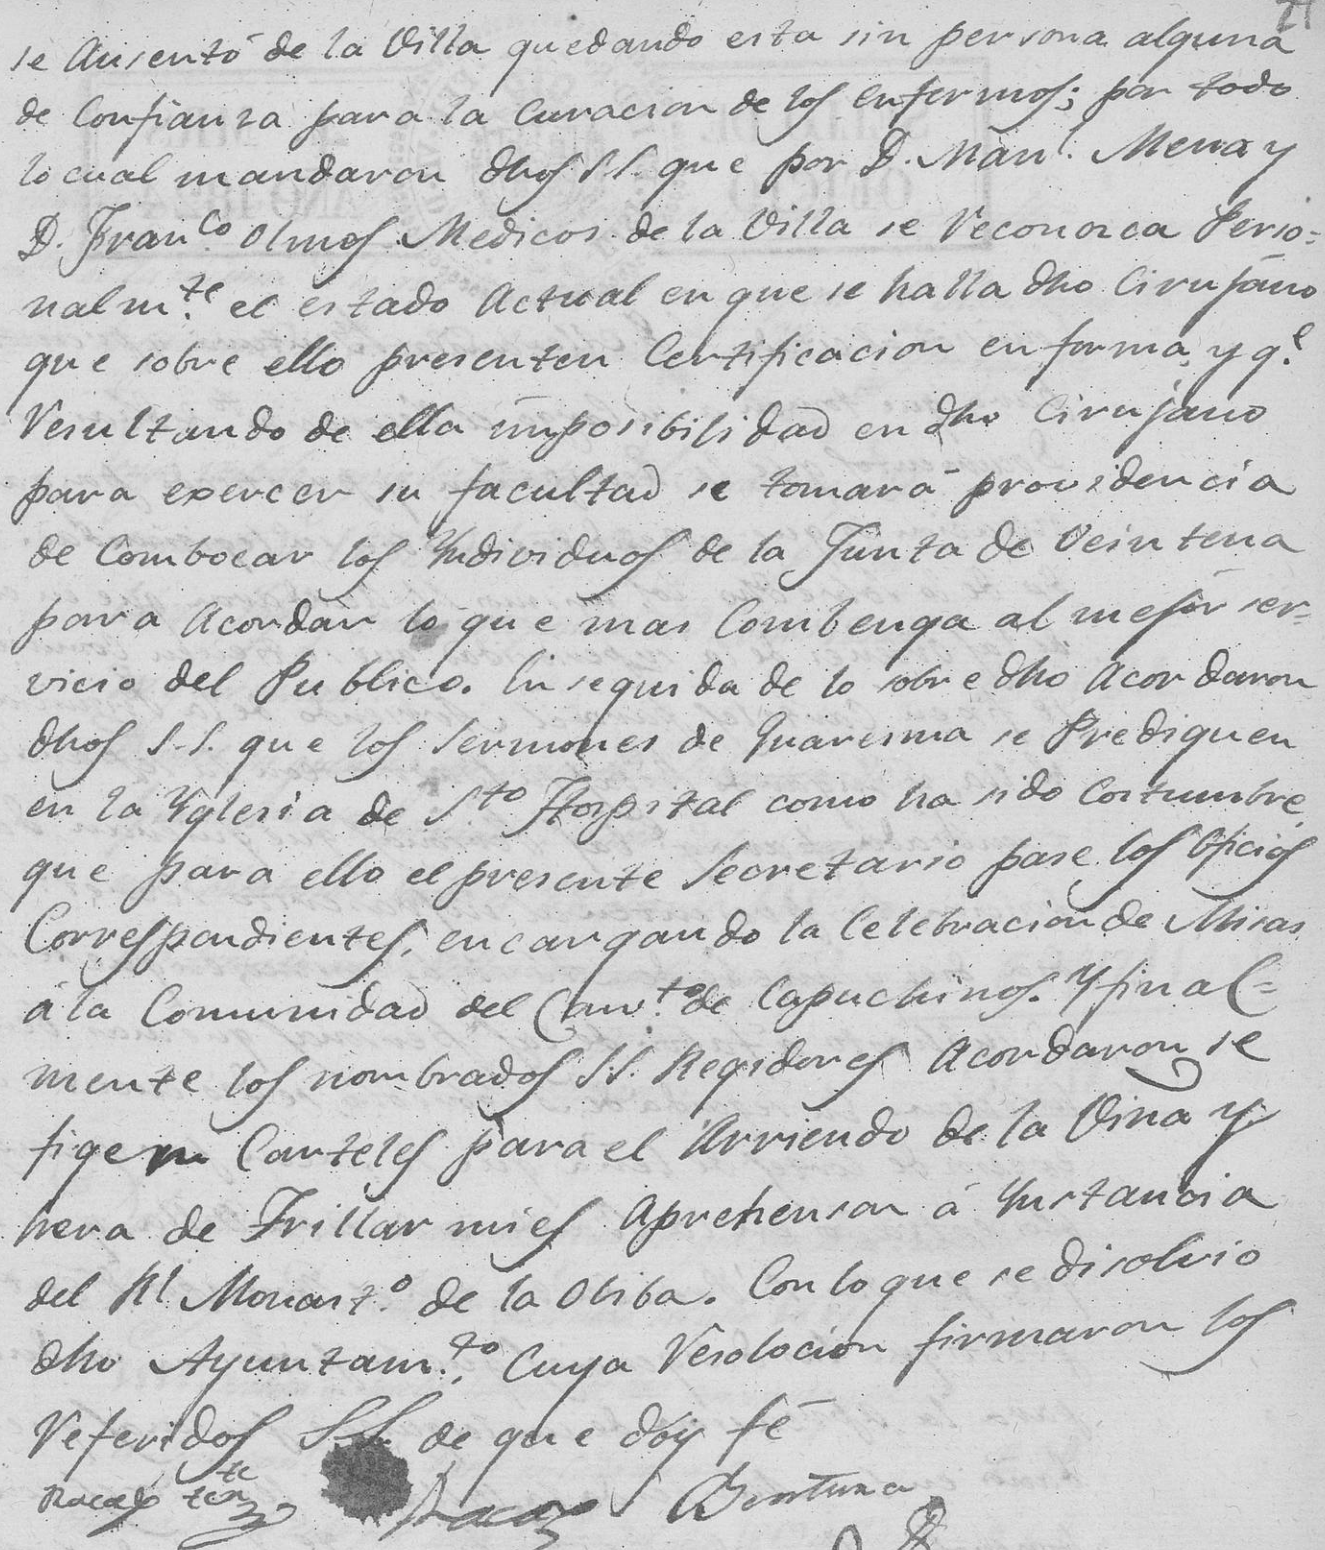 se Ausentó de la Villa quedando esta sin persona alguna
de Confianza para la Curacion de los enfermos; por todo
lo cual mandaron dhos SS. que por D. Man.l Mena y
D. Fran.co Olmos Medicos de la Villa se Reconozca Perso=
nalm.te el estado Actual en que se halla dho Cirujano
que sobre ello presenten Certificacion en forma, y q.e
Resultando de ella imposibilidad en dho Cirujano
para exercer su facultad se tomará providencia
de Combocar los Yndividuos de la Junta de Veintena
para Acordar lo que mas Combenga al mejor ser=
vicio del Publico. En seguida de lo sobre dho Acordaron
dhos S.S. que los Sermones de Quaresma se Prediquen
en la Yglesia de S.to Hospital como ha sido Costumbre,
que para ello el presente Secretario pase los Oficios
Correspondientes, encargando la Celebracion de Misas
á la Comunidad del Conv.to de Capuchinos. Y final=
mente los nombrados SS. Regidores Acordaron se
figen Carteles para el Arriendo de la Viña y
hera de Trillar mies Aprehension á Ynstancia
del Rl Monast.o de la Oliba. Con lo que se disolvio
dho Ayuntam.to, Cuya Resolocion firmaron los
Referidos S.S. de que doy fé
Racax ten.te Racax Bentura